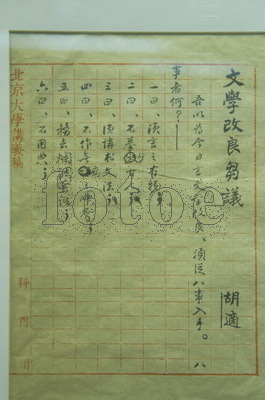 文學改良芻議
胡適
吾以為今日言文學改良、須從八事入手。八
事者何?——
一曰、須言之有物。
二曰、不摹仿古人。
三曰、須講求文法。
四曰、不作無病之呻吟。
五曰、務去爛調套語。
六曰、不用典。
北京大學講義稿
科 門
fotoe